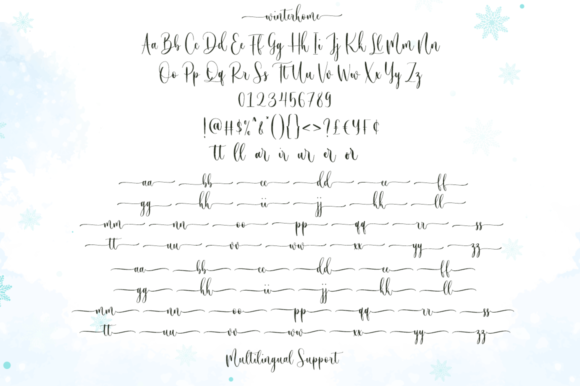 winterhome
Aa Bb Cc Dd Ee Ff Gg Hh Ii Jj Kh Ll Mm Nn
Oo Pp Qq Rr Ss Tt Uu Vv Ww Xx Yy Zz
0123456789
!@#$%^&*(){}<>?£€¥
tt ll ar ir ur er or
aa bb cc dd ee ff
gg hh ii jj kk ll
mm nn oo pp qq rr ss
tt uu vv ww xx yy zz
aa bb cc dd ee ff
gg hh ii jj kk ll
mm nn oo pp qq rr ss
tt uu vv ww xx yy zz
Multilingual Support